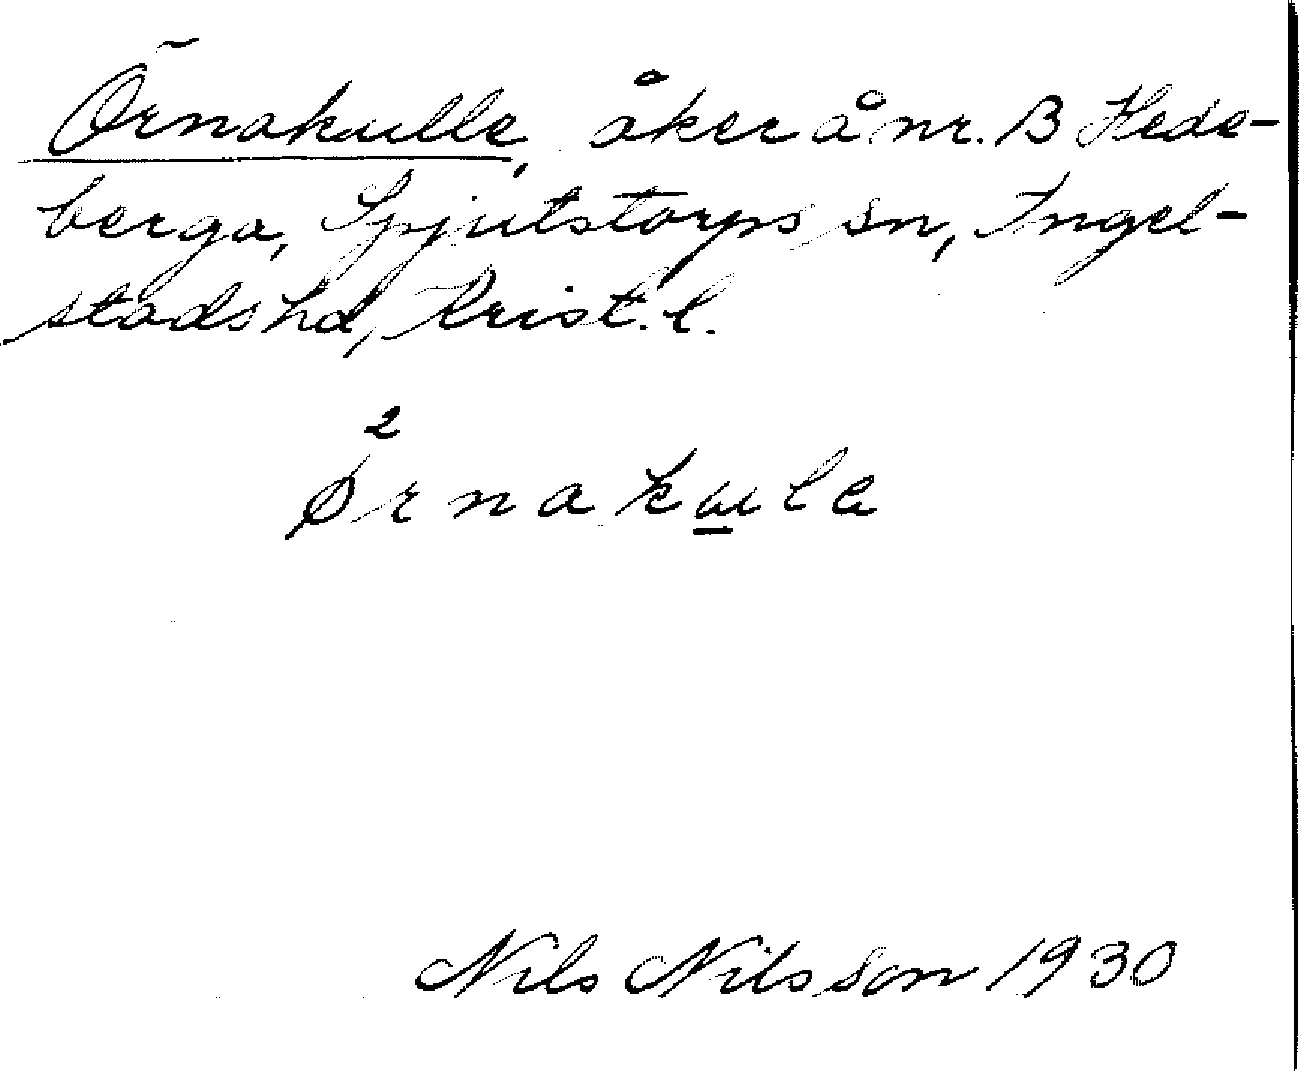 Örnakulle, åker å nr. 13 Hede-
berga, Spjutstorps sn, Ingel-
stads hd, Krist. l.
2
ørnakulα
Nils Nilsson 1930